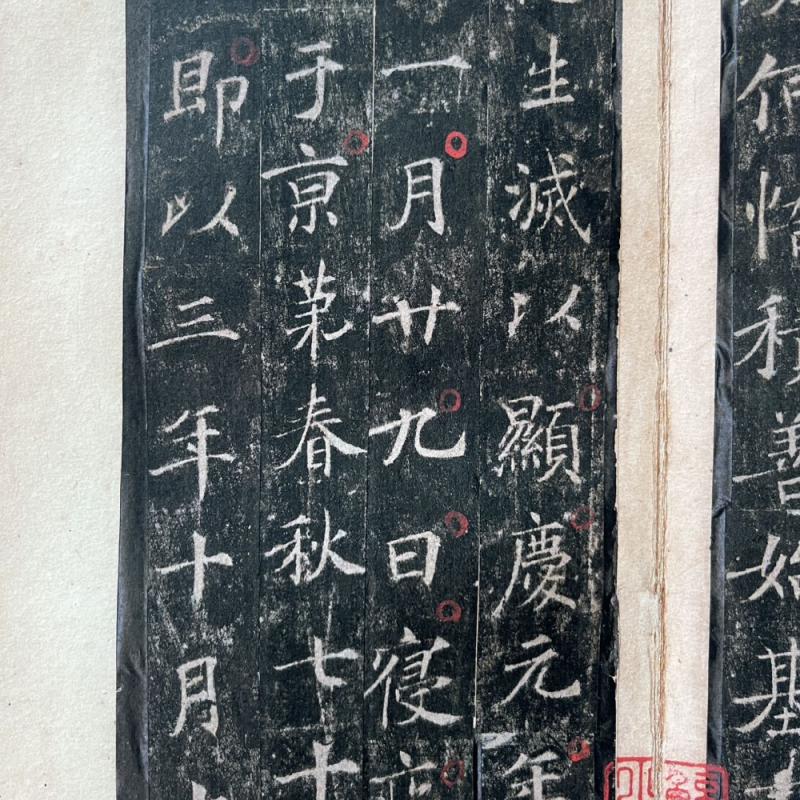 何積善始基
生滅以顯慶元年
一月廿九日寢
于亰苐春秋七十
即以三年十月